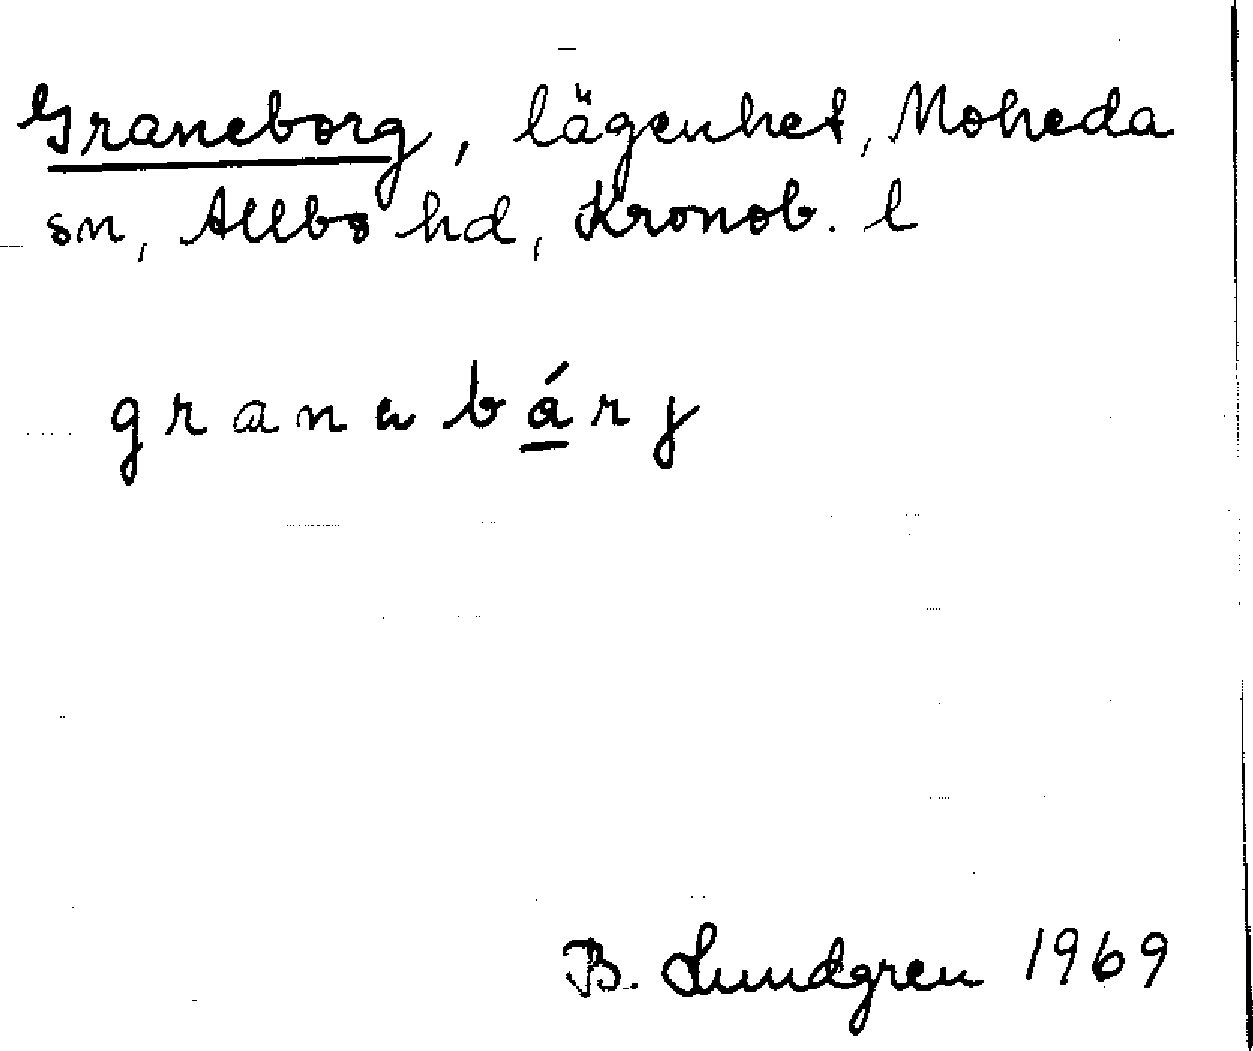 Graneborg, lägenhet, Moheda
sn, Allbo hd, Kronob. l
B. Lundgren 1969